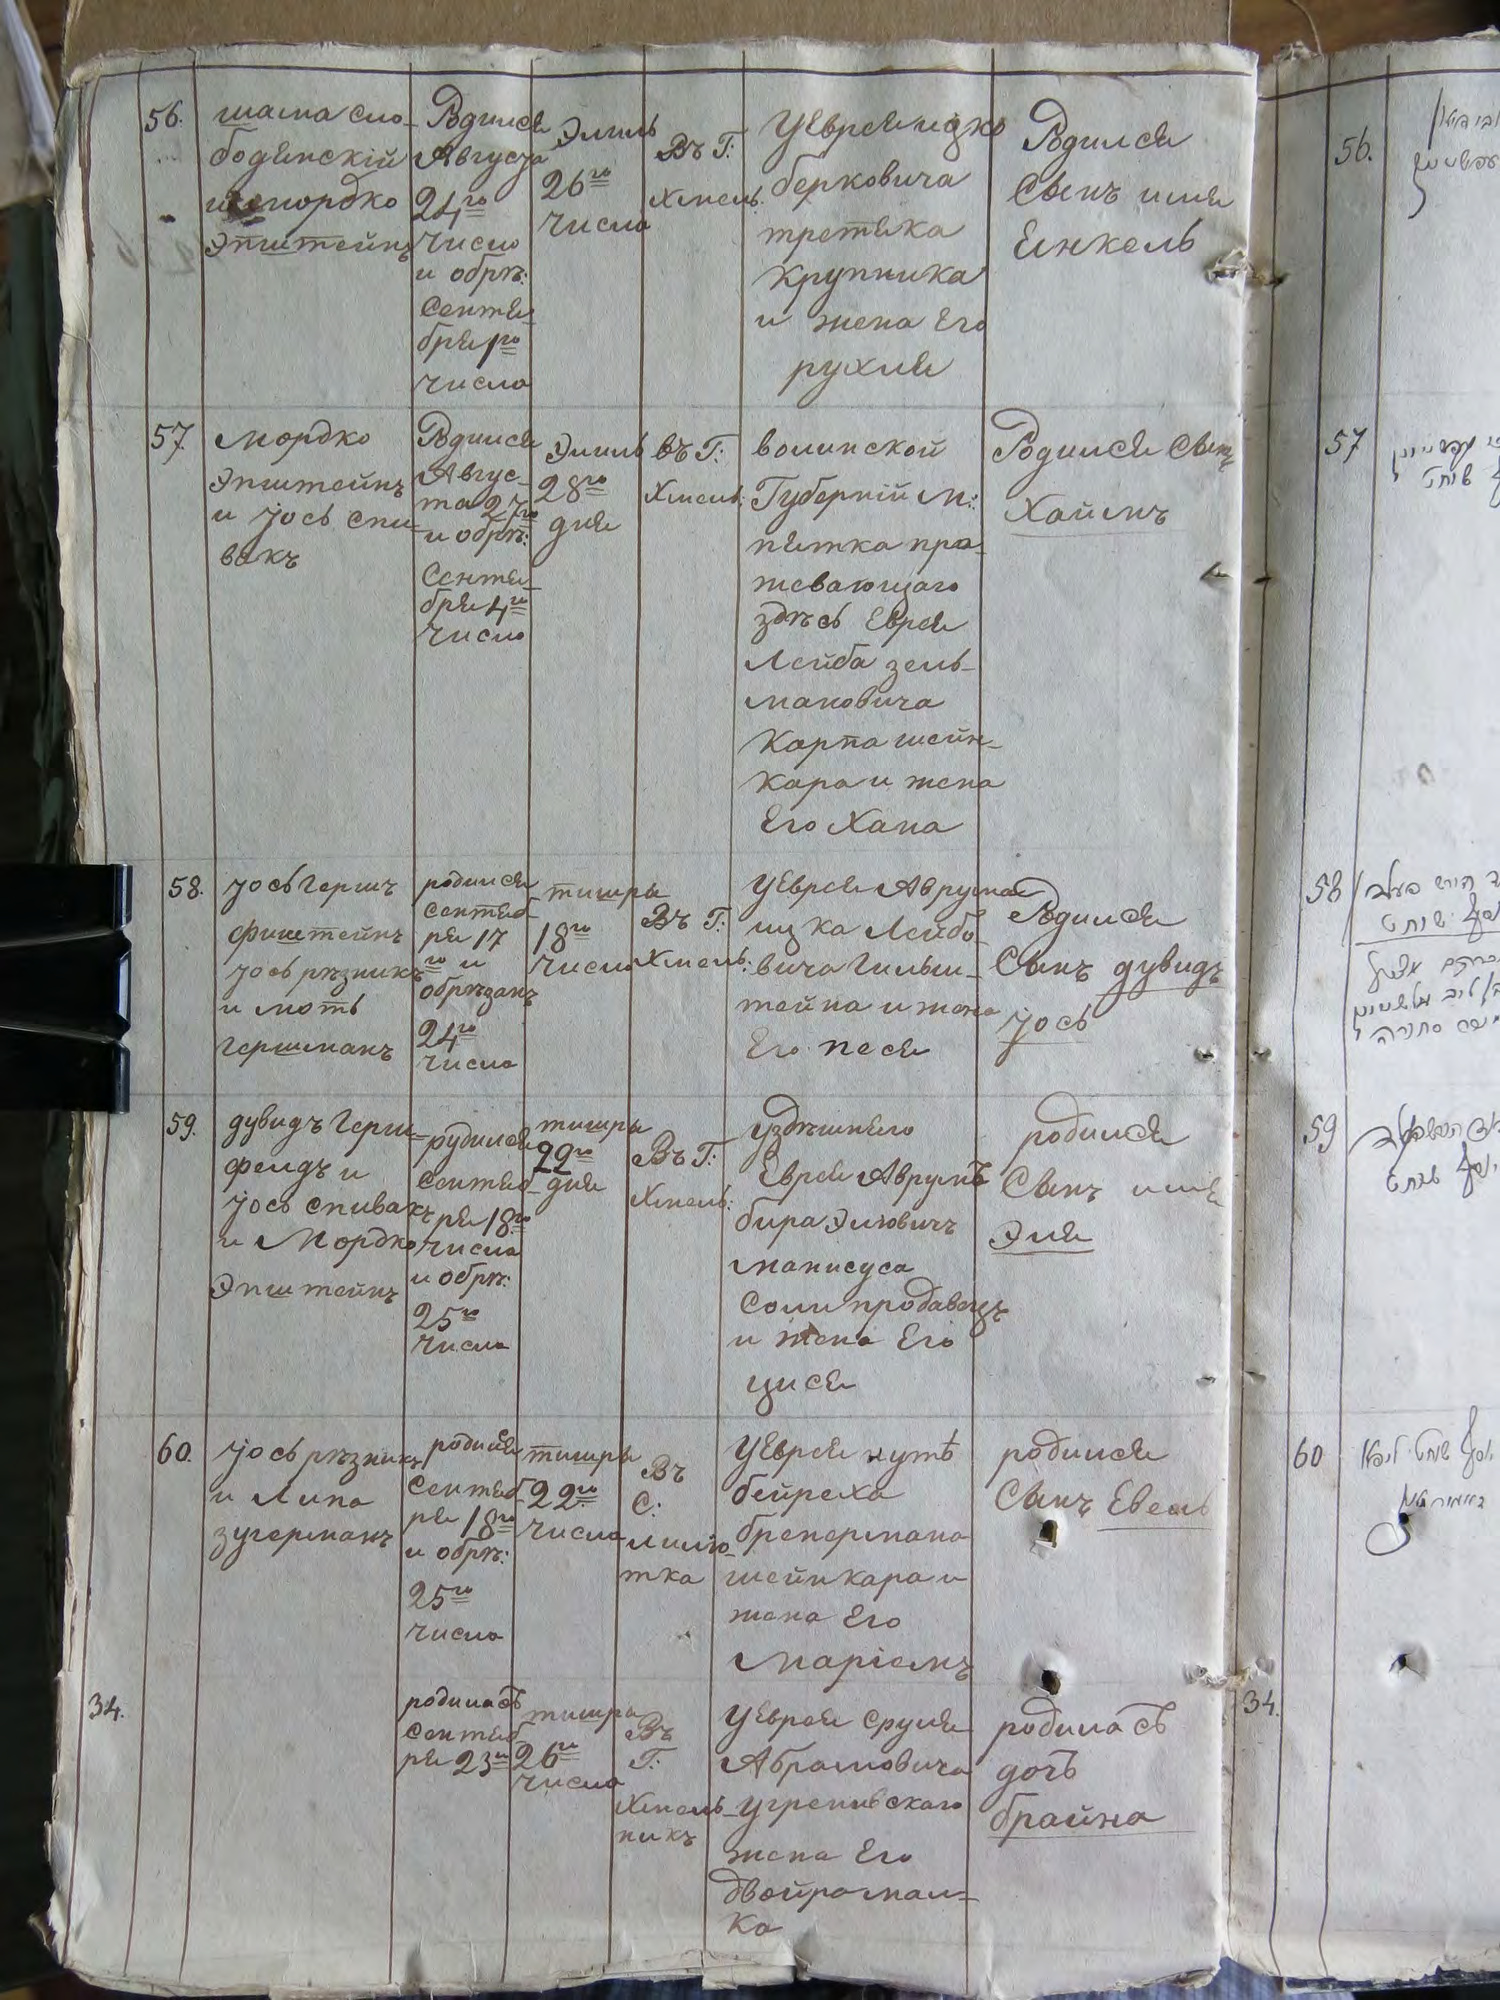 56.
шама сло-
бодянскій
и мордко
Эпштейнъ
Родился
Августа
24го
число
и обрѣ:
сентя-
бря 1го
число
Элиль
26го
числа
Въ Г:
Хмель:
У Еврея ицко
берковича
третяка
крупника
и жена Его
рухля
Родился
Сынъ имя
Еинкель
57
мордко
Эпштейнъ
и іось спи-
вакъ
Родился
Авгус-
та 27го
и обрѣ:
Сентя-
бря 4го
число
Элиль
28го
дня
въ Г:
Хмель:
волинской
Губерній м:
пятка про-
жевающаго
здѣсь Еврея
Лейба зель-
мановича
Карпа шейн-
кара и жена
Его Хана
Родился Сынъ
Хаимъ
58.
іось Герш
фиштейнъ
іось рѣзникъ
и моть
гершманъ
родился
сентяб-
ря 17
го и
обрѣзанъ
24го
числа
тишры
18го
числа
Въ Г:
Хмель:
У Еврея Аврума
ицка Лейбо-
вича Гильш-
тейна и жена
Его песя
Родился
Сынъ дувидъ
іось
59.
дувидъ Герш-
фелдъ и
іось спивакъ
и Мордко
Эпштейнъ
рудился
Сентяб-
ря 18го
числа
и обрѣ:
25го
числа
тишры
22го
дня
Въ Г:
Хмель:
У здѣшнего
Еврея Аврумъ
бира Элювичъ
манисуса
соли продавецъ
и жена Его
цися
родился
Сынъ имя
Эля
60.
іось рѣзникъ
и Липа
зугерманъ
родился
Сентяб-
ря 18го
и обрѣ:
25го
числа
тишры
22го
числа
Въ
С:
тка
У Еврея нутѣ
бейреха
бренермана
шейнкара и
жена Его
Маріемъ
родился
Сынъ Евель
34.
родилась
сентяб-
ря 23го
тишры
26го
числа
Въ
Г:
Хмель-
никъ
У Еврея Сруля
Абрамовича
угреновскаго
жена Его
двойрамал-
ка
родилась
дочь
брайна
56.
57
58
59
60
34.